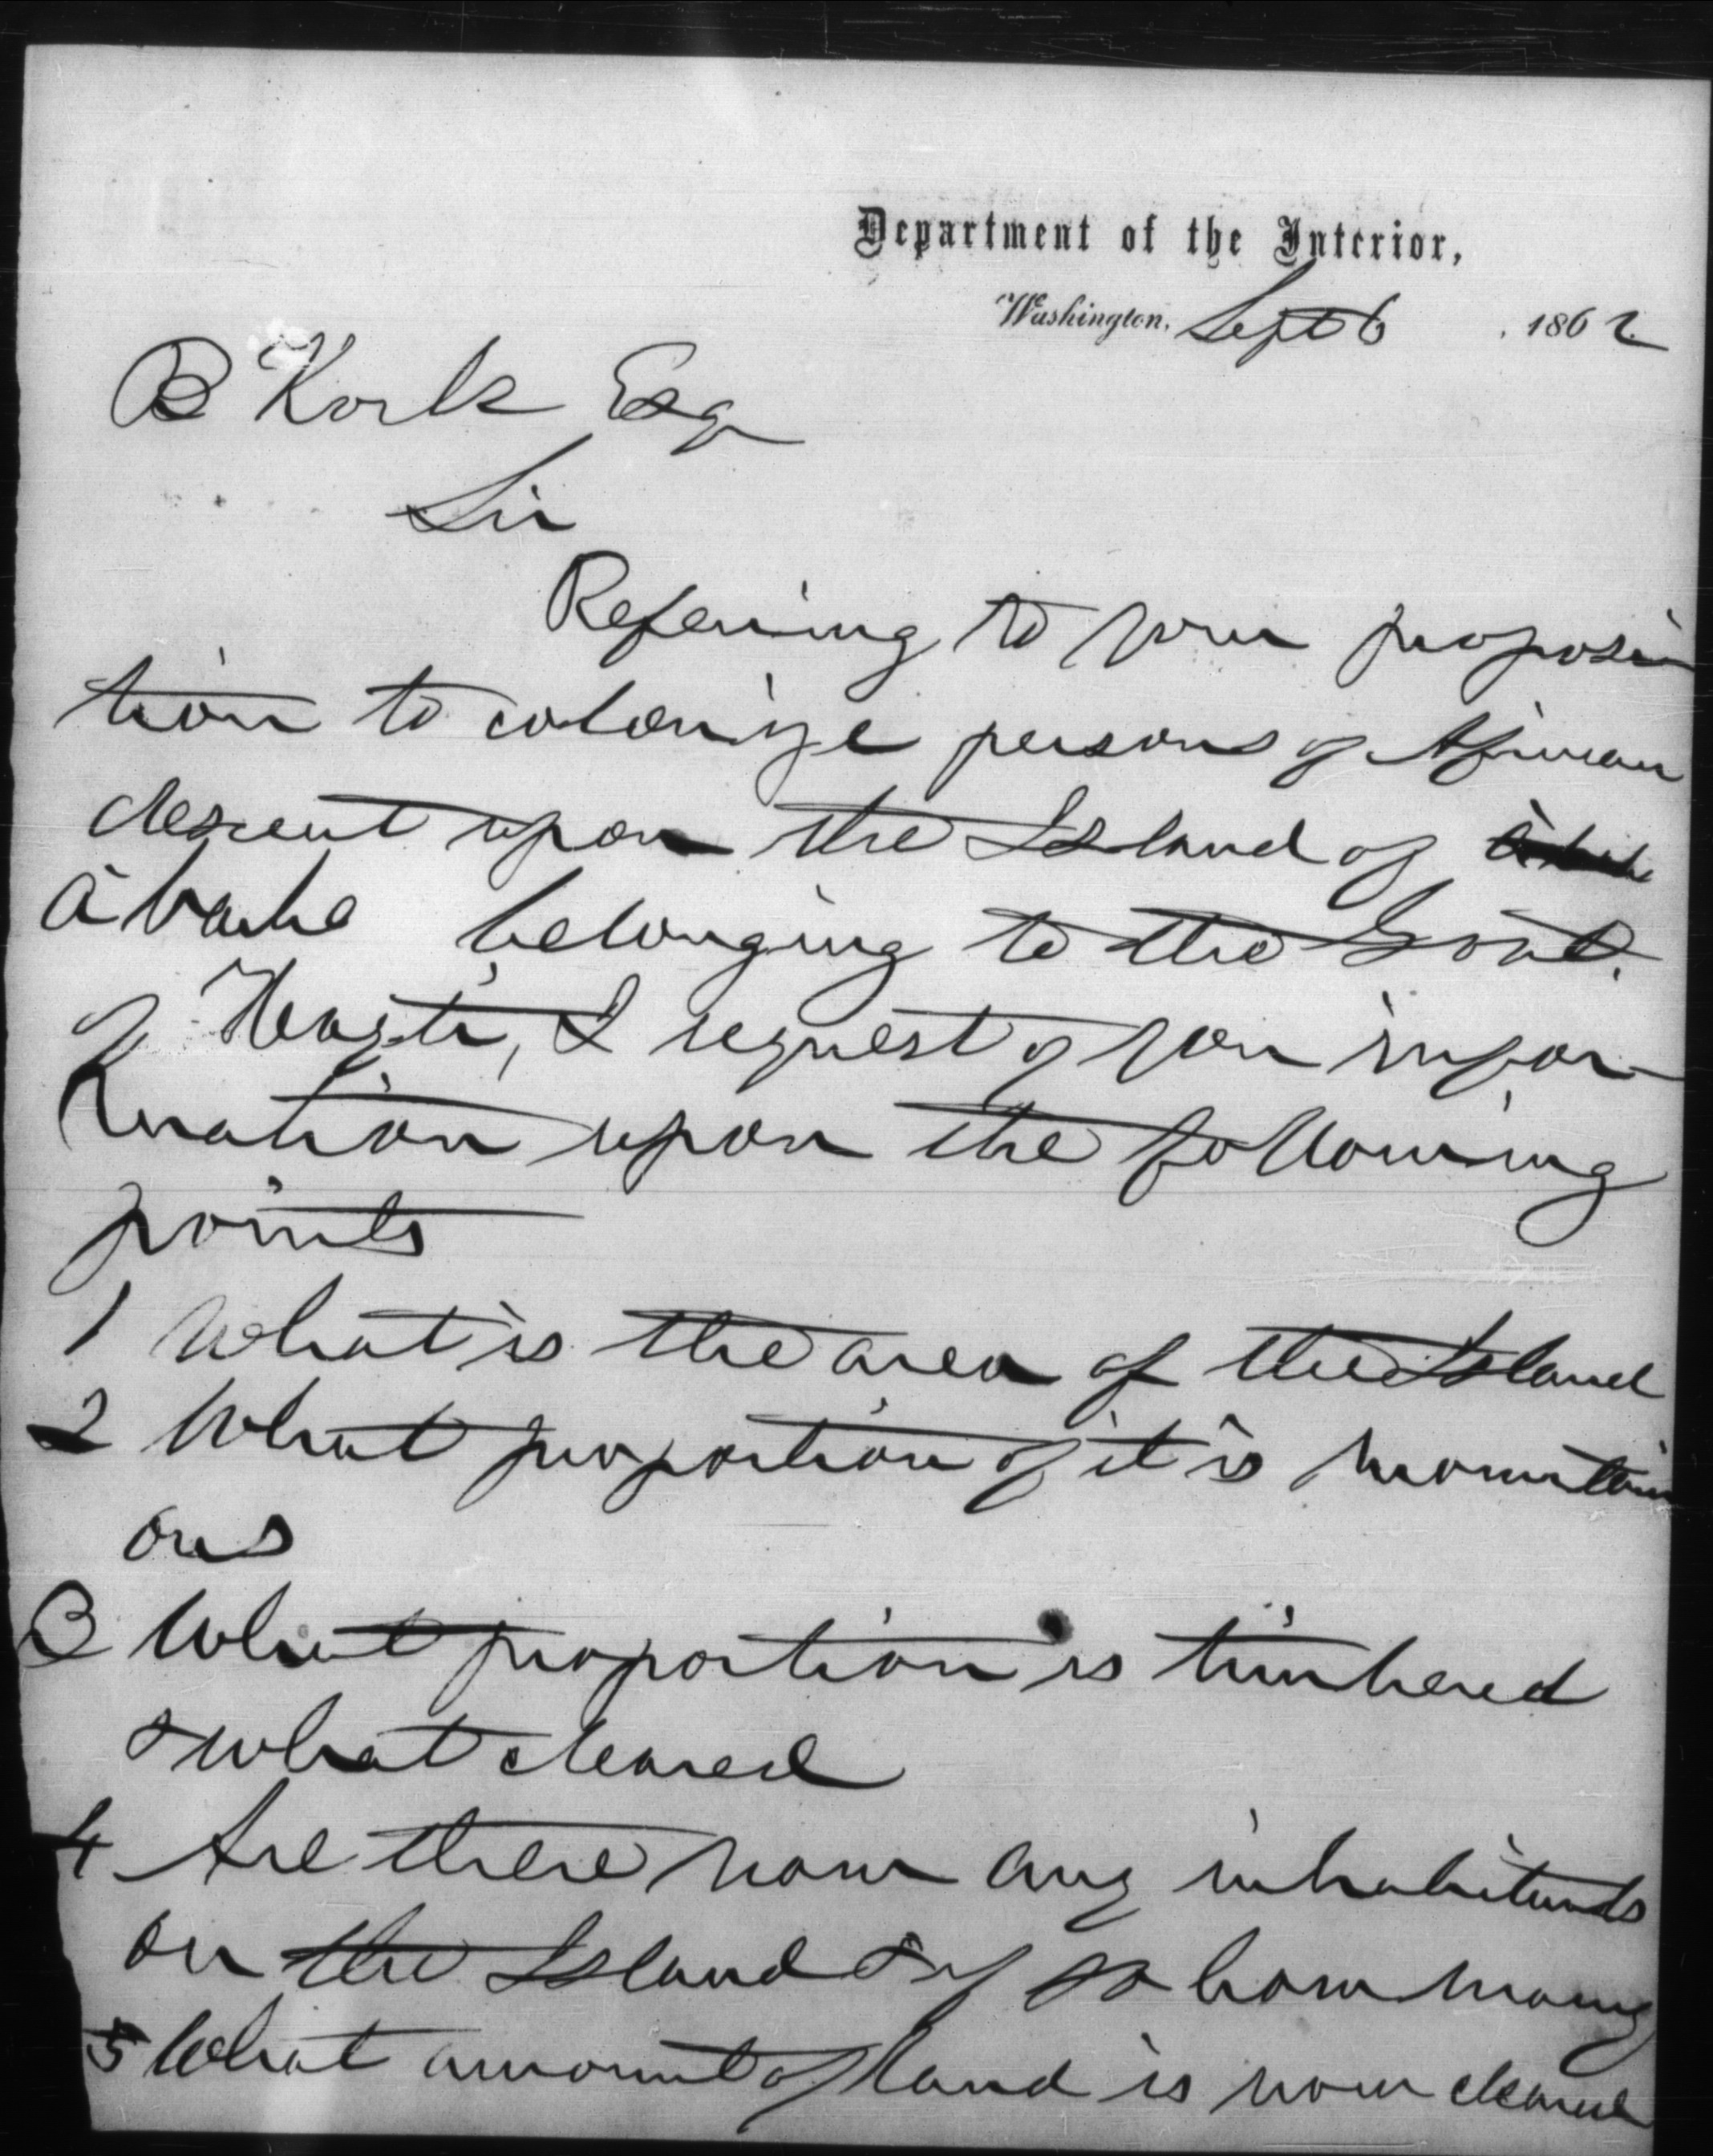 Department of the Interior,
Washington, Sept 6, 1862
B Kock Esq
Sir
Referring to your proposi
tion to colonize persons of African
descent upon the Island of
a vache belonging to the Govt.
of Hayti, I request of you infor-
mation upon the following
points
1 What is the area of the Island
2 What proportion of it is mountain
ous
3 What proportion is timbered
& what cleared
4 Are there now any inhabitants
on the Island & if so how many
5 What amount of land is now cleared